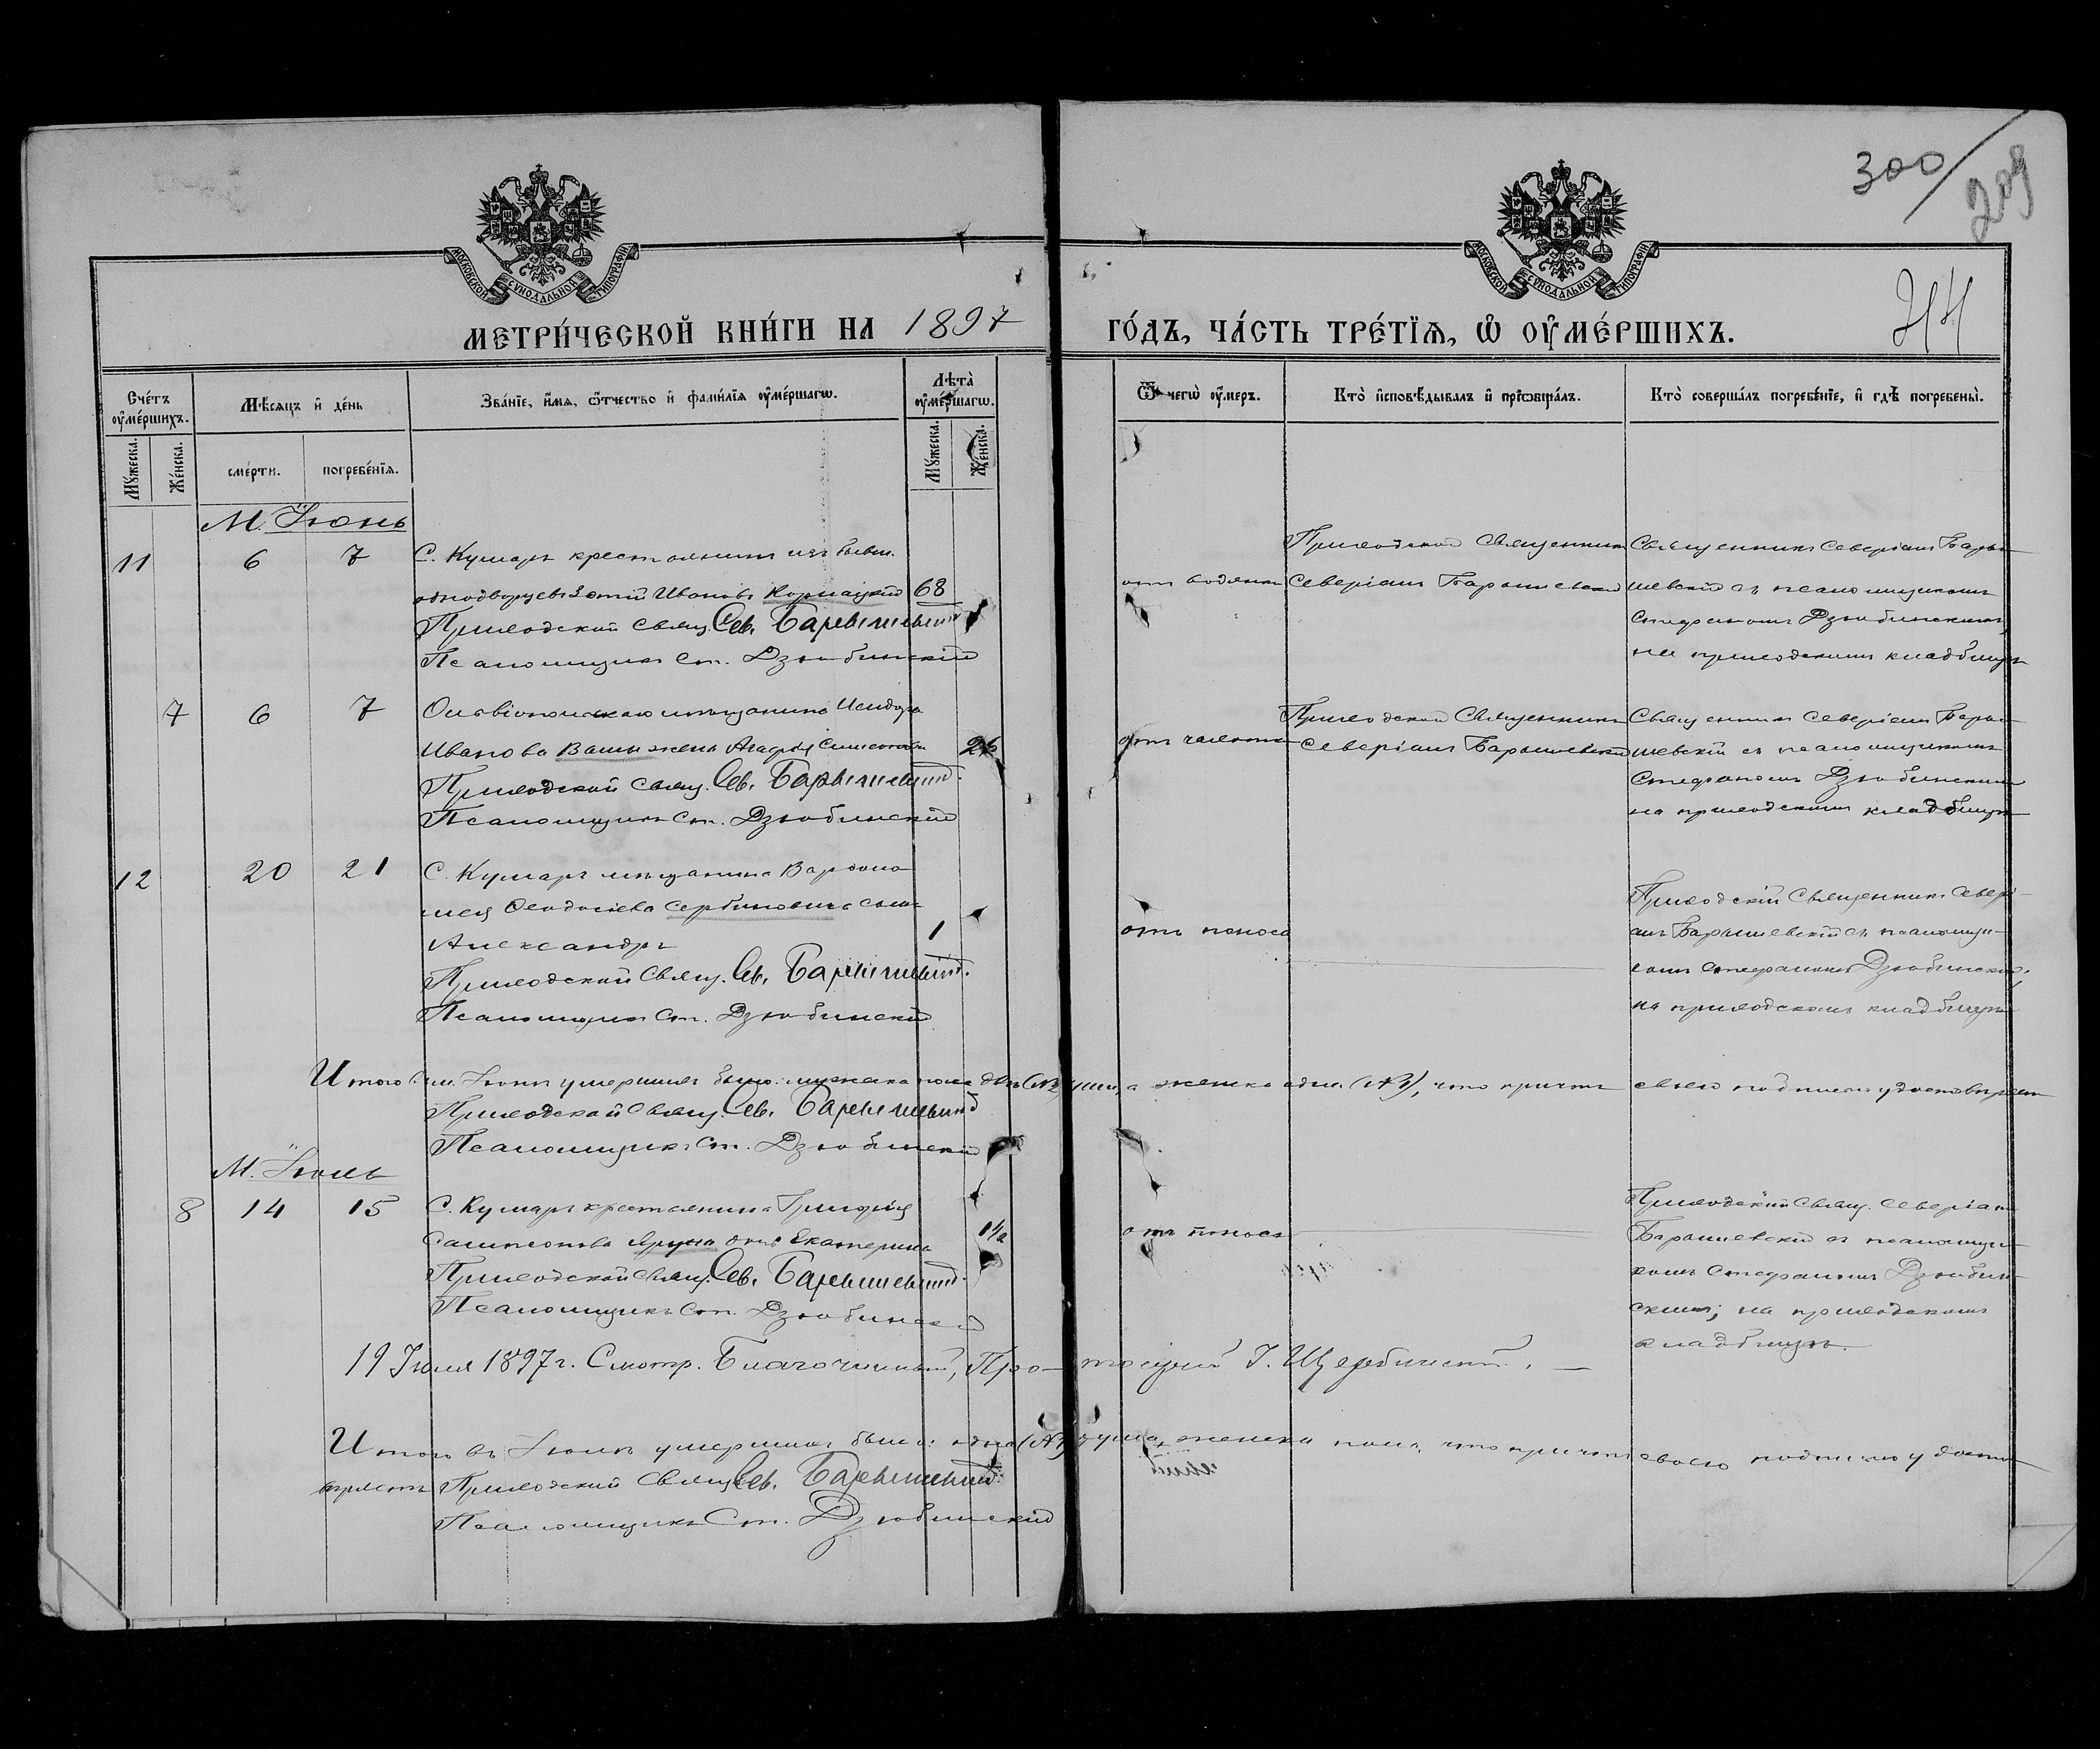 300/209
МОСКОВСКОЙ СѴНОДАЛЬНОЙ ТИПОГРАФІИ
МОСКОВСКОЙ СѴНОДАЛЬНОЙ ТИПОГРАФІИ
МЕТРИ́ЧЕСКОЙ КНИ́ГИ НА 1897
ГО́ДЪ, ЧА́СТЬ ТРЕ́ТЇѦ, Ѡ҆ ОУ҆МЕ́РШИХЪ.
Сче́тъ оу҆ме́ршихъ.
Мѣ́сяцъ и҆ де́нь
Зва́нїе, и҆́мѧ, ѻ҆́тчество и҆ фами́лїѧ оу҆ме́ршагѡ.
Лѣта̀ оу҆ме́ршагѡ.
Ѿ чегѡ̀ оу҆́меръ.
Кто̀ и҆сповѣ́дывалъ и҆ прїѡбща́лъ.
Кто̀ соверша́лъ погребе́нїе, и҆ гдѣ̀ погребены̀.
Мꙋ́жеска. Же́нска. сме́рти. погребе́нїѧ. Мꙋ́жеска. Же́нска.
М. Іюнь
11 6 7 С. Кумаръ крестьянинъ изъ бывш.
однодворцевъ Зотій Ивановъ Кормацкій 68
Приходской Свящ. Сев. Барышевскій
Псаломщикъ Ст. Дзюбинскій
отъ водянки
Приходской Священникъ
Северіанъ Барышевскій
Священникъ Северіанъ Бары-
шевскій съ псаломщикомъ
Стефаномъ Дзюбинскимъ,
на приходскомъ кладбищѣ
7 6 7 Ольвіопольскаго мѣщанина Исидора
Иванова жена Агафія Симеонова 26
Приходской Свящ. Сев. Барышевскій
Псаломщикъ Ст. Дзюбинскій
отъ чахотки
Приходской Священникъ
Северіанъ Барышевскій
Священникъ Северіанъ Бары-
шевскій съ псаломщикомъ
Стефаномъ Дзюбинскимъ
на приходскомъ кладбищѣ
12 20 21 С. Кумаръ мѣщанина Варфоло-
мея Ѳеодосіева Сербиновича сынъ
Александръ 1
Приходской Свящ. Сев. Барышевскій
Псаломщикъ Ст. Дзюбинскій
отъ поноса
Приходскій Священникъ Севері-
анъ Барышевскій съ псаломщи-
комъ Стефаномъ Дзюбинскимъ,
на приходскомъ кладбищѣ
Итого въ м. Іюнѣ умершихъ было: мужеска пола двѣ (№2) души, а женска одна (№1), что причтъ своею подписью удостовѣряетъ
Приходской Свящ. Сев. Барышевскій
Псаломщикъ Ст. Дзюбинскій
М. Іюль
8 14 15 С. Кумаръ крестьянина Григорія
Сампсонова дочь Екатерина 1½
Приходской Свящ. Сев. Барышевскій
Псаломщикъ Ст. Дзюбинскій
отъ поноса
Приходскій Свящ. Северіанъ
Барышевскій съ псаломщи-
комъ Стефаномъ Дзюбин-
скимъ; на приходскомъ
кладбищѣ.
19 Іюля 1897 г. Смотр. Благочинный, Про-тоіерей І. Щербинскій. —
Итого въ Іюлѣ умершихъ было: одна (№1) душа, женска пола, что причтъ своею подписью удосто-
вѣряетъ Приходскій Свящ. Сев. Барышевскій
Псаломщикъ Ст. Дзюбинскій